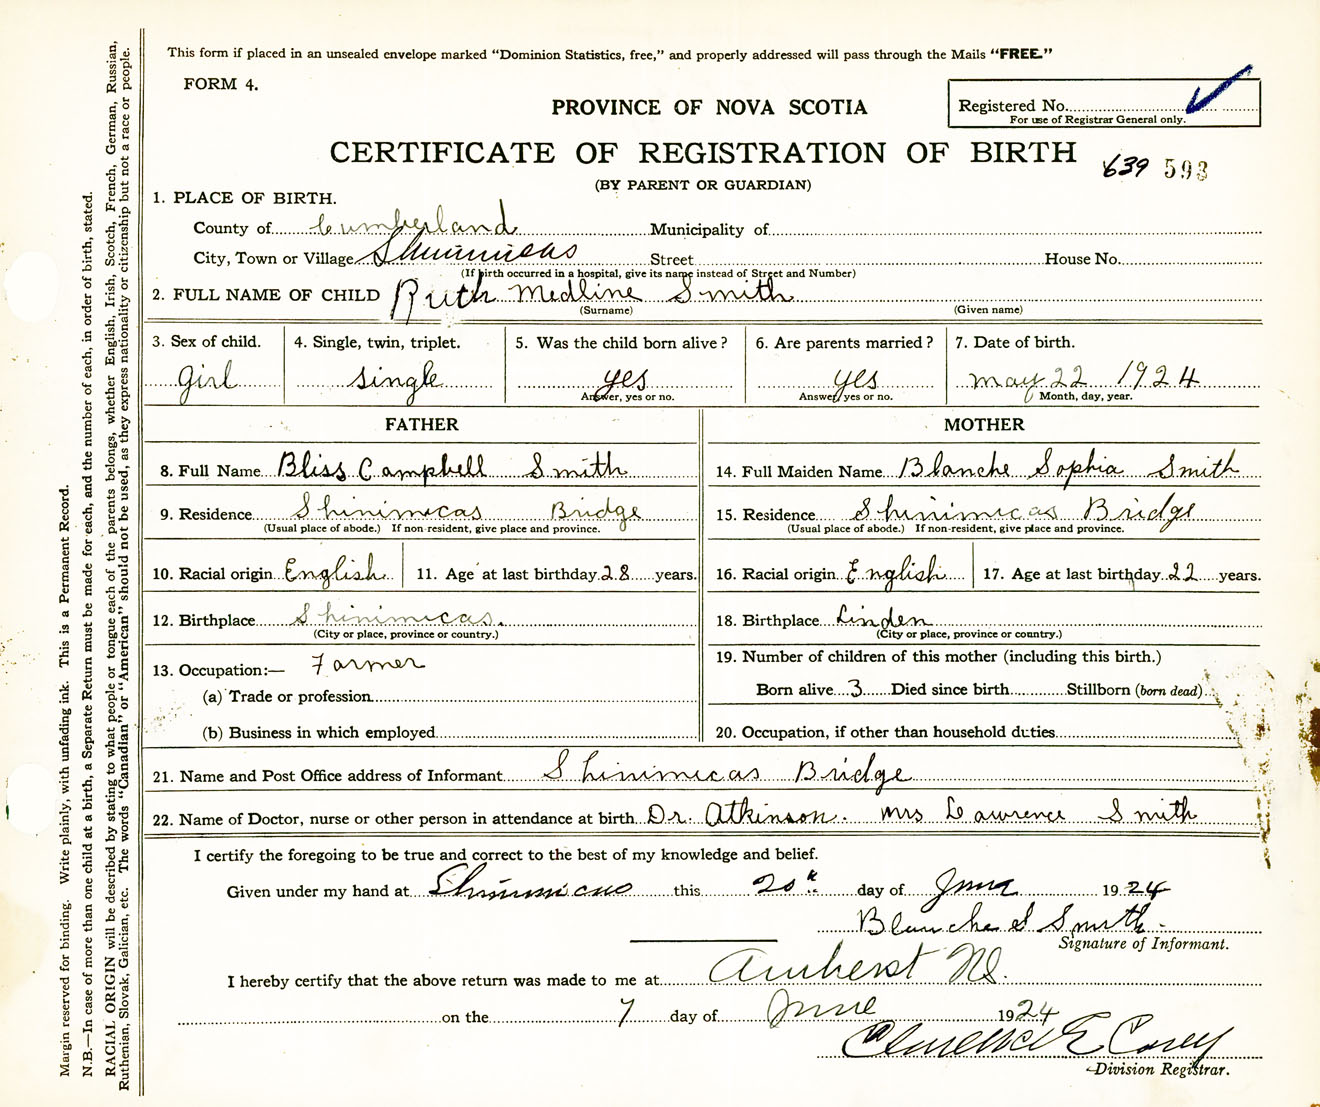 This form if placed in an unsealed envelope marked “Dominion Statistics, free,” and properly addressed will pass through the Mails “FREE.”
FORM 4.
PROVINCE OF NOVA SCOTIA
Registered No.
For use of Registrar General only.
CERTIFICATE OF REGISTRATION OF BIRTH
639 593
(BY PARENT OR GUARDIAN)
1. PLACE OF BIRTH.
County of Cumberland Municipality of
City, Town or Village Shinimicas Street House No.
(If birth occurred in a hospital, give its name instead of Street and Number)
2. FULL NAME OF CHILD Ruth Medline Smith
(Surname) (Given name)
3. Sex of child. 4. Single, twin, triplet. 5. Was the child born alive? 6. Are parents married? 7. Date of birth.
Girl single yes yes may 22 1924
Answer, yes or no. Answer, yes or no. Month, day, year.
FATHER MOTHER
8. Full Name Bliss Campbell Smith 14. Full Maiden Name Blanche Sophia Smith
9. Residence Shinimicas Bridge 15. Residence Shinimicas Bridge
(Usual place of abode.) If non-resident, give place and province. (Usual place of abode.) If non-resident, give place and province.
10. Racial origin English 11. Age at last birthday 28 years. 16. Racial origin English 17. Age at last birthday 22 years.
12. Birthplace Shinimicas. 18. Birthplace Linden
(City or place, province or country.) (City or place, province or country.)
13. Occupation:— Farmer 19. Number of children of this mother (including this birth.)
(a) Trade or profession Born alive 3 Died since birth Stillborn (born dead)
(b) Business in which employed 20. Occupation, if other than household duties
21. Name and Post Office address of Informant Shinimicas Bridge
22. Name of Doctor, nurse or other person in attendance at birth Dr. Atkinson. Mrs Lawrence Smith
I certify the foregoing to be true and correct to the best of my knowledge and belief.
Given under my hand at Shinimicas this 20th day of June 1924
Blanche S Smith.
Signature of Informant.
I hereby certify that the above return was made to me at Amherst NS.
on the 7 day of June 1924
Clarence E Casey
Division Registrar.
Margin reserved for binding. Write plainly, with unfading ink. This is a Permanent Record.
N.B.—In case of more than one child at a birth, a Separate Return must be made for each, and the number of each, in order of birth, stated.
RACIAL ORIGIN will be described by stating to what people or tongue each of the parents belongs, whether English, Irish, Scotch, French, German, Russian,
Ruthenian, Slovak, Galician, etc. The words “Canadian” or “American” should not be used, as they express nationality or citizenship but not a race or people.